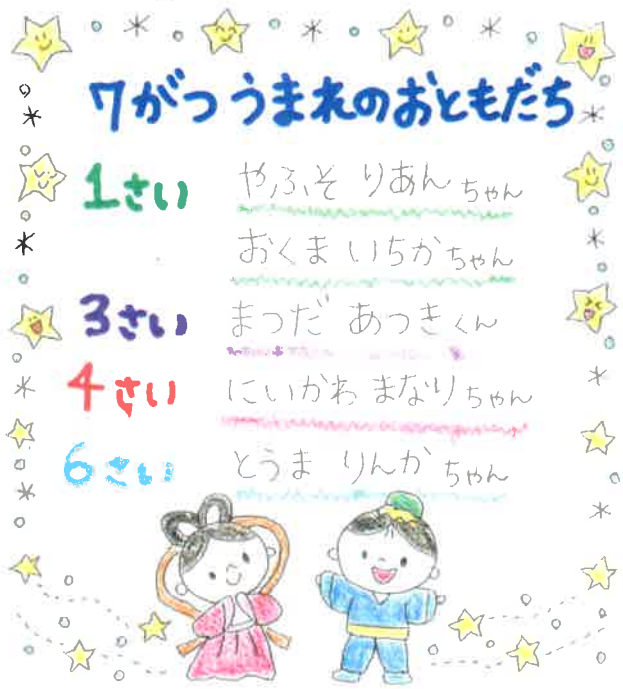 7がつうまれのおともだち
1さい やふそ りあんちゃん
おくま いちかちゃん
3さい まつだ あつきくん
4さい にいかわ まなりちゃん
6さい とうま りんかちゃん